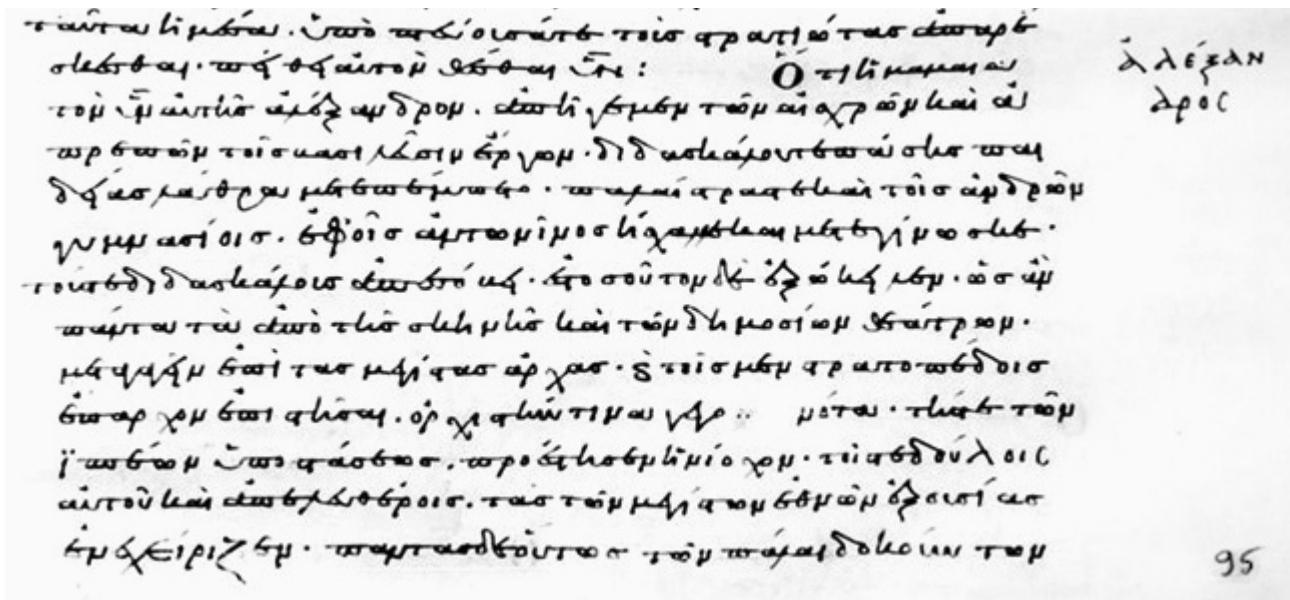 ταῦτα ἡ μέσα. ὑποπτεύουσά τε τοῖς στρατιώτας ἀπαρέ
σκεσθαι· πείθει αὐτὸν θέσθαι υν: Ὅτι ἡ μαμαία
τὸν υν αὐτῆς ἀλέξανδρον. ἀπῆγεμεν τῶν αἰσχρῶν καὶ ἀ
πρεπῶν τοῖς βασιλεῦσιν ἔργων· διδασκάλουστε πάσης παι
δείας λάθρα μετεπέμπετο· παλαίστραιστε καὶ τοῖς ἀνδρῶν
γυμνασίοις. ἐφ' οἷς ἀντωνῖνος ἤχθετο καὶ μετεγίνωσκε·
τούστε διδασκάλους ἀπεδίωκε· ἐς τοσοῦτον δὲ ἐξώκειλεν· ὡς ἂν
πάντα τὰ ἀπὸ τῆς σκηνῆς καὶ τῶν δημοσίων θεάτρων·
μεταγαγεῖν ἐπὶ τὰς μεγίστας ἀρχάς· καὶ τοῖς μεν στρατοπέδοις
ἔπαρχον ἐπιστῆσαι. ὀρχηστήν τινα γεγονότα· τῆς τε τῶν
ἱππέων ὑποστάσεως. προέστησεν ἡνίοχον· τοῖς τε δούλοις
αὐτοῦ καὶ ἀπελευθέροις. τὰς τῶν μεγίστων ἐθνῶν ἐξουσίας
ἐνεχείριζεν· πάντας δὲ οὕτως τῶν πάλαι δοκούντων
ἀλέξαν
δρος
95